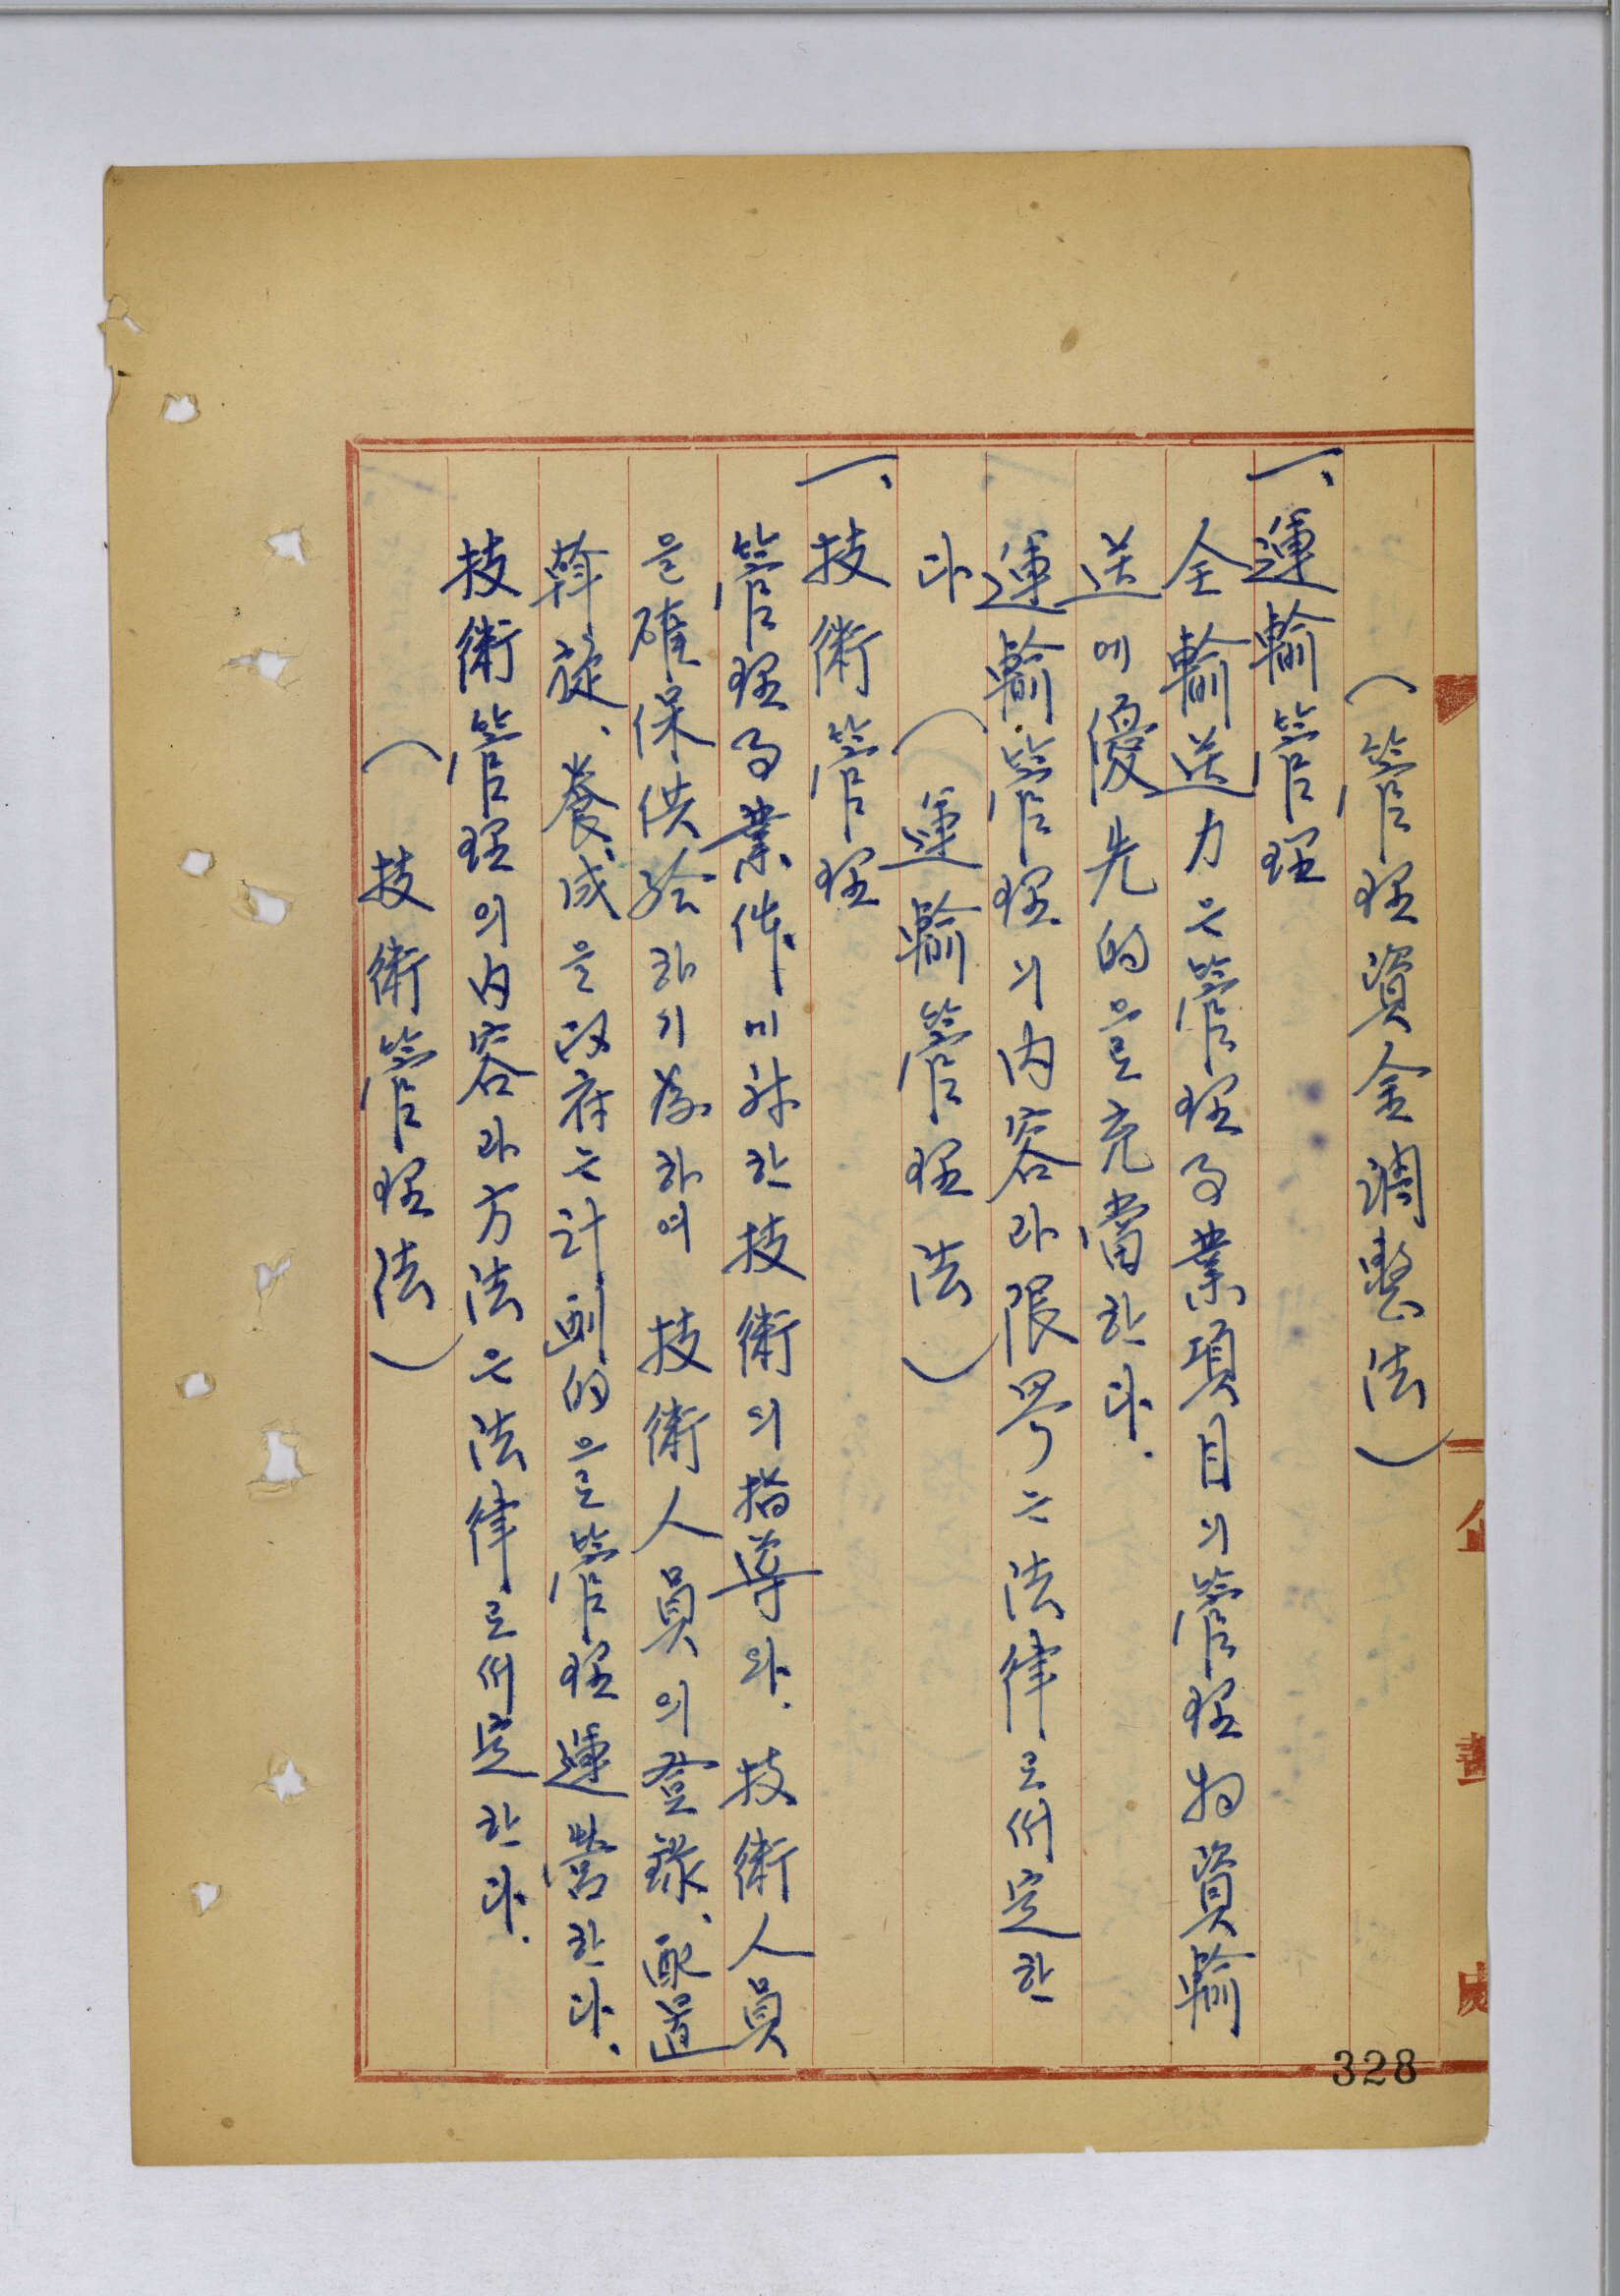 (管理資金調整法)
一、運輸管理
全輸送力은管理事業項目의管理物資輸
送에優先的으로充當한다.
運輸管理의內容과限界는法律로써定한
다 (運輸管理法)
一、技術管理
管理事業体에對한技術의指導와、技術人員
을確保供給하기為하여 技術人員의登錄、配置
斡旋、養成을政府는計劃的으로管理運營한다.
技術管理의內容과方法은法律로써定한다.
(技術管理法)
328